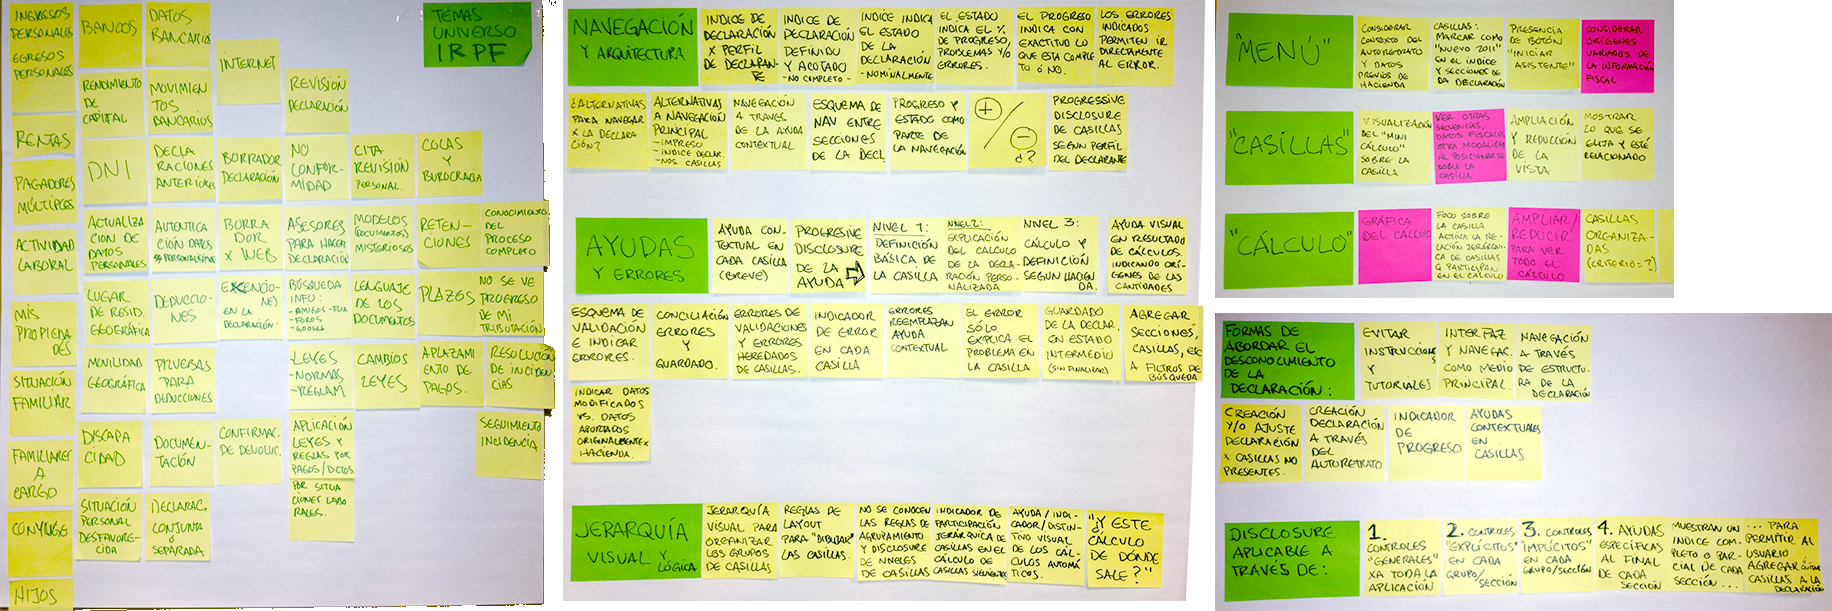 TEMAS
UNIVERSO
IRPF
INGRESOS
PERSONALES
EGRESOS
PERSONALES
BANCOS
DATOS
BANCARIOS
INTERNET
REVISIÓN
DECLARACIÓN
RENTAS
RENDIMIENTO
DE
CAPITAL
MOVIMIEN
TOS
BANCARIOS
PAGADORES
MÚLTIPLES
DNI
DECLA
RACIONES
ANTERIORES
BORRADOR
DECLARACIÓN
NO
CONFOR-
MIDAD
CITA
REVISIÓN
PERSONAL.
COLAS
Y
BUROCRACIA
ACTIVIDAD
LABORAL
ACTUALIZA
CION DE
DATOS
PERSONALES
AUTENTICA
CIÓN DATOS
PERSONALÍSIMOS
BORRA
DOR
X WEB
ASESORES
PARA HACER
DECLARACIÓN
MODELOS
(DOCUMENTOS)
MISTERIOSOS
RETEN-
CIONES
CONOCIMIENTO
DEL
PROCESO
COMPLETO
MIS
PROPIEDA
DES
LUGAR
DE RESID.
GEOGRÁFICA
DEDUCCIO-
NES
EXENCIO-
NES
EN LA
DECLARACIÓN.
BÚSQUEDA
INFO:
-AMIGOS-FLIA
-FOROS
-GOOGLE
LENGUAJE
DE LOS
DOCUMENTOS
PLAZOS
NO SE VE
PROGRESO
DE MI
TRIBUTACIÓN
SITUACIÓN
FAMILIAR
MOVILIDAD
GEOGRÁFICA
PRUEBAS
PARA
DEDUCCIONES
-LEYES
-NORMAS
-REGLAM
CAMBIOS
LEYES
APLAZAMI
ENTO DE
PAGOS.
RESOLUCIÓN
DE INCIDEN
CIAS
FAMILIARES
A
CARGO
DISCAPA
CIDAD
DOCUMEN-
TACIÓN
CONFIRMAC.
DE DEVOLUC.
APLICACIÓN
LEYES Y
REGLAS POR
PAGOS/DCTOS.
SEGUIMIENTO
INCIDENCIA
CONYUGE
SITUACIÓN
PERSONAL
DESFAVORE-
CIDA
DECLARAC.
CONJUNTA
o
SEPARADA
POR SITUA
CIONES LABO
RALES.
HIJOS
NAVEGACIÓN
Y ARQUITECTURA
INDICE DE
DECLARACIÓN
X PERFIL
DE DECLARAN-
TE
INDICE DE
DECLARACIÓN
DEFINIDO
Y ACOTADO
-NO COMPLETO-
INDICE INDICA
EL ESTADO
DE LA
DECLARACIÓN
-NOMINALMENTE-
EL ESTADO
INDICA EL %
DE PROGRESO,
PROBLEMAS Y/O
ERRORES.
EL PROGRESO
INDICA CON
EXACTITUD LO
QUE ESTA COMPLE
TO Ó NO.
LOS ERRORES
INDICADOS
PERMITEN IR
DIRECTAMENTE
AL ERROR.
¿ALTERNATIVAS
PARA NAVEGAR
X LA DECLARA
CIÓN?
ALTERNATIVAS
A NAVEGACIÓN
PRINCIPAL
-IMPRESO
-INDICE DECLAR.
-NOS. CASILLAS
NAVEGACIÓN
A TRAVES
DE LA AYUDA
CONTEXTUAL
ESQUEMA DE
NAV ENTRE
SECCIONES
DE LA DECL.
PROGRESO Y
ESTADO COMO
PARTE DE
LA NAVEGACIÓN
+/-
¿?
PROGRESSIVE
DISCLOSURE
DE CASILLAS
SEGUN PERFIL
DEL DECLARANTE
AYUDAS
Y ERRORES
AYUDA CON-
TEXTUAL EN
CADA CASILLA
(BREVE)
PROGRESIVE
DISCLOSURE
DE LA
AYUDA
NIVEL 1:
DEFINICIÓN
BÁSICA DE
LA CASILLA
NIVEL 2:
EXPLICACIÓN
DEL CALCULO
DE LA DECLA-
RACIÓN PERSO-
NALIZADA
NIVEL 3:
CÁLCULO Y
DEFINICIÓN
SEGUN HACIEN
DA.
AYUDA VISUAL
EN RESULTADO
DE CÁLCULOS.
INDICANDO ORÍ-
GENES DE LAS
CANTIDADES
ESQUEMA DE
VALIDACIÓN
E INDICAR
ERRORES.
CONCILIACIÓN
ERRORES
Y
GUARDADO.
ERRORES DE
VALIDACIONES
Y ERRORES
HEREDADOS
DE CASILLAS.
INDICADOR
DE ERROR
EN CADA
CASILLA
ERRORES
REEMPLAZAN
AYUDA
CONTEXTUAL
EL ERROR
SÓLO
EXPLICA EL
PROBLEMA EN
LA CASILLA
GUARDADO
DE LA DECLAR.
EN ESTADO
INTERMEDIO
(SIN FINALIZAR)
AGREGAR
SECCIONES,
CASILLAS, ETC
A FILTROS DE
BÚSQUEDA
INDICAR DATOS
MODIFICADOS
VS. DATOS
APORTADOS
ORIGINALMENTE X
HACIENDA.
JERARQUÍA
VISUAL Y
LÓGICA
JERARQUÍA
VISUAL PARA
ORGANIZAR
LOS GRUPOS
DE CASILLAS
REGLAS DE
LAYOUT
PARA "DIBUJAR"
LAS CASILLAS.
NO SE CONOCEN
LAS REGLAS DE
AGRUPAMIENTO
Y DISCLOSURE
DE NIVELES
DE CASILLAS
INDICADOR DE
PARTICIPACIÓN
JERÁRQUICA DE
CASILLAS EN EL
CÁLCULO DE
CASILLAS SIGUIENTES
AYUDA/INDI-
CADOR/DISTIN-
TIVO VISUAL
DE LOS CÁL-
CULOS AUTOMÁ
TICOS.
"¿Y ESTE
CÁLCULO
DE DÓNDE
SALE?"
"MENÚ"
CONSIDERAR
CONTEXTO DEL
AUTORETRATO
Y DATOS
PREVIOS DE
HACIENDA
CASILLAS:
MARCAR COMO
"NUEVO 2011"
EN EL ÍNDICE
Y SECCIONES DE
LA DECLARACIÓN
PRESENCIA
DE BOTÓN
"INICIAR
ASISTENTE"
CONSIDERAR
ORÍGENES
VARIADOS DE
LA INFORMACIÓN
FISCAL
"CASILLAS"
VISUALIZACIÓN
DEL "MINI
CÁLCULO"
SOBRE LA
CASILLA
VER OTRAS
SECUENCIAS,
DATOS FISCALES
OTRA MODALIDAD
AL POSICIONARSE
SOBRE LA
CASILLA
AMPLIACIÓN
Y REDUCCIÓN
DE LA
VISTA
MOSTRAR
LO QUE SE
ELIJA Y ESTÉ
RELACIONADO
"CÁLCULO"
GRÁFICA
DEL CÁLCULO
FOCO SOBRE
LA CASILLA
ACTIVA LA RE-
LACIÓN JERÁRQUI-
CA DE CASILLAS
Q PARTICIPAN
EN EL CÁLCULO
AMPLIAR/
REDUCIR
PARA VER
TODO EL
CÁLCULO
CASILLAS
ORGANIZA-
DAS
(CRITERIO=?)
FORMAS DE
ABORDAR EL
DESCONOCIMIENTO
DE LA
DECLARACIÓN:
EVITAR
INSTRUCCIONES
Y
TUTORIALES
INTERFAZ
Y NAVEGAC.
COMO MEDIO
PRINCIPAL.
NAVEGACIÓN
A TRAVÉS
DE ESTRUCTU-
RA DE LA
DECLARACIÓN
CREACIÓN
Y/O AJUSTE
DECLARACIÓN
X CASILLAS NO
PRESENTES.
CREACIÓN
DECLARACIÓN
A TRAVÉS
DEL
AUTORETRATO
INDICADOR
DE
PROGRESO
AYUDAS
CONTEXTUALES
EN
CASILLAS
DISCLOSURE
APLICABLE A
TRAVÉS DE:
1.
CONTROLES
"GENERALES"
XA TODA LA
APLICACIÓN
2. CONTROLES
"EXPLÍCITOS"
EN CADA
GRUPO/
SECCIÓN
3. CONTROLES
IMPLÍCITOS"
EN CADA
GRUPO/SECCIÓN
4. AYUDAS
ESPECÍFICAS
AL FINAL
DE CADA
SECCIÓN
MUESTRAN UN
INDICE COM-
PLETO O PAR-
CIAL DE CADA
SECCIÓN ...
... PARA
PERMITIR AL
USUARIO
AGREGAR
CASILLAS A LA
DECLARACIÓN